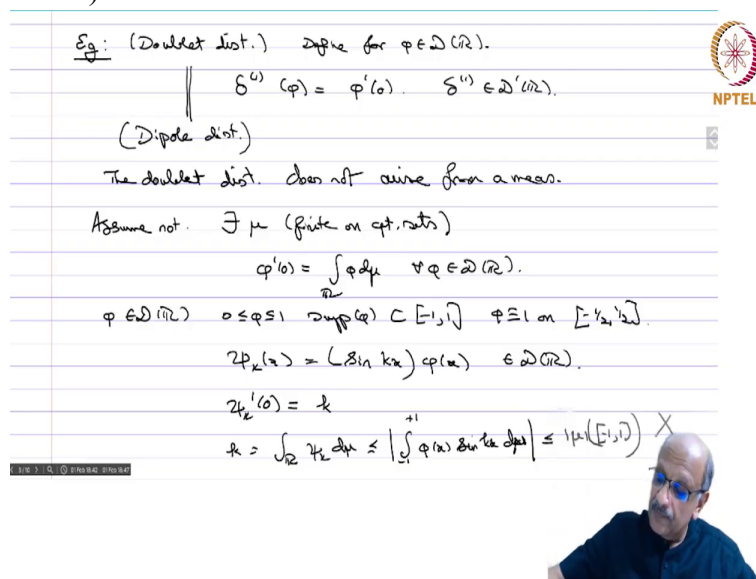 Eg: (Doublet dist.) Define for φ ∈ D(ℝ).
δ⁽¹⁾ (φ) = φ'(0). δ⁽¹⁾ ∈ D'(ℝ).
NPTEL
(Dipole dist.)
The doublet dist. does not arise from a meas.
Assume not. ∃ μ (finite on cpt. sets)
φ'(0) = ∫_ℝ φ dμ ∀ φ ∈ D(ℝ).
φ ∈ D(ℝ) 0 ≤ φ ≤ 1 supp(φ) ⊂ [-1,1] φ ≡ 1 on [-½, ½].
ψ_k(x) = (sin kx) φ(x) ∈ D(ℝ).
ψ_k'(0) = k
k = ∫_ℝ ψ_k dμ ≤ |∫_{-1}^{+1} φ(x) sin kx dμ| ≤ |μ|([-1,1]) X
5/10 01 Feb 18:42 01 Feb 18:47